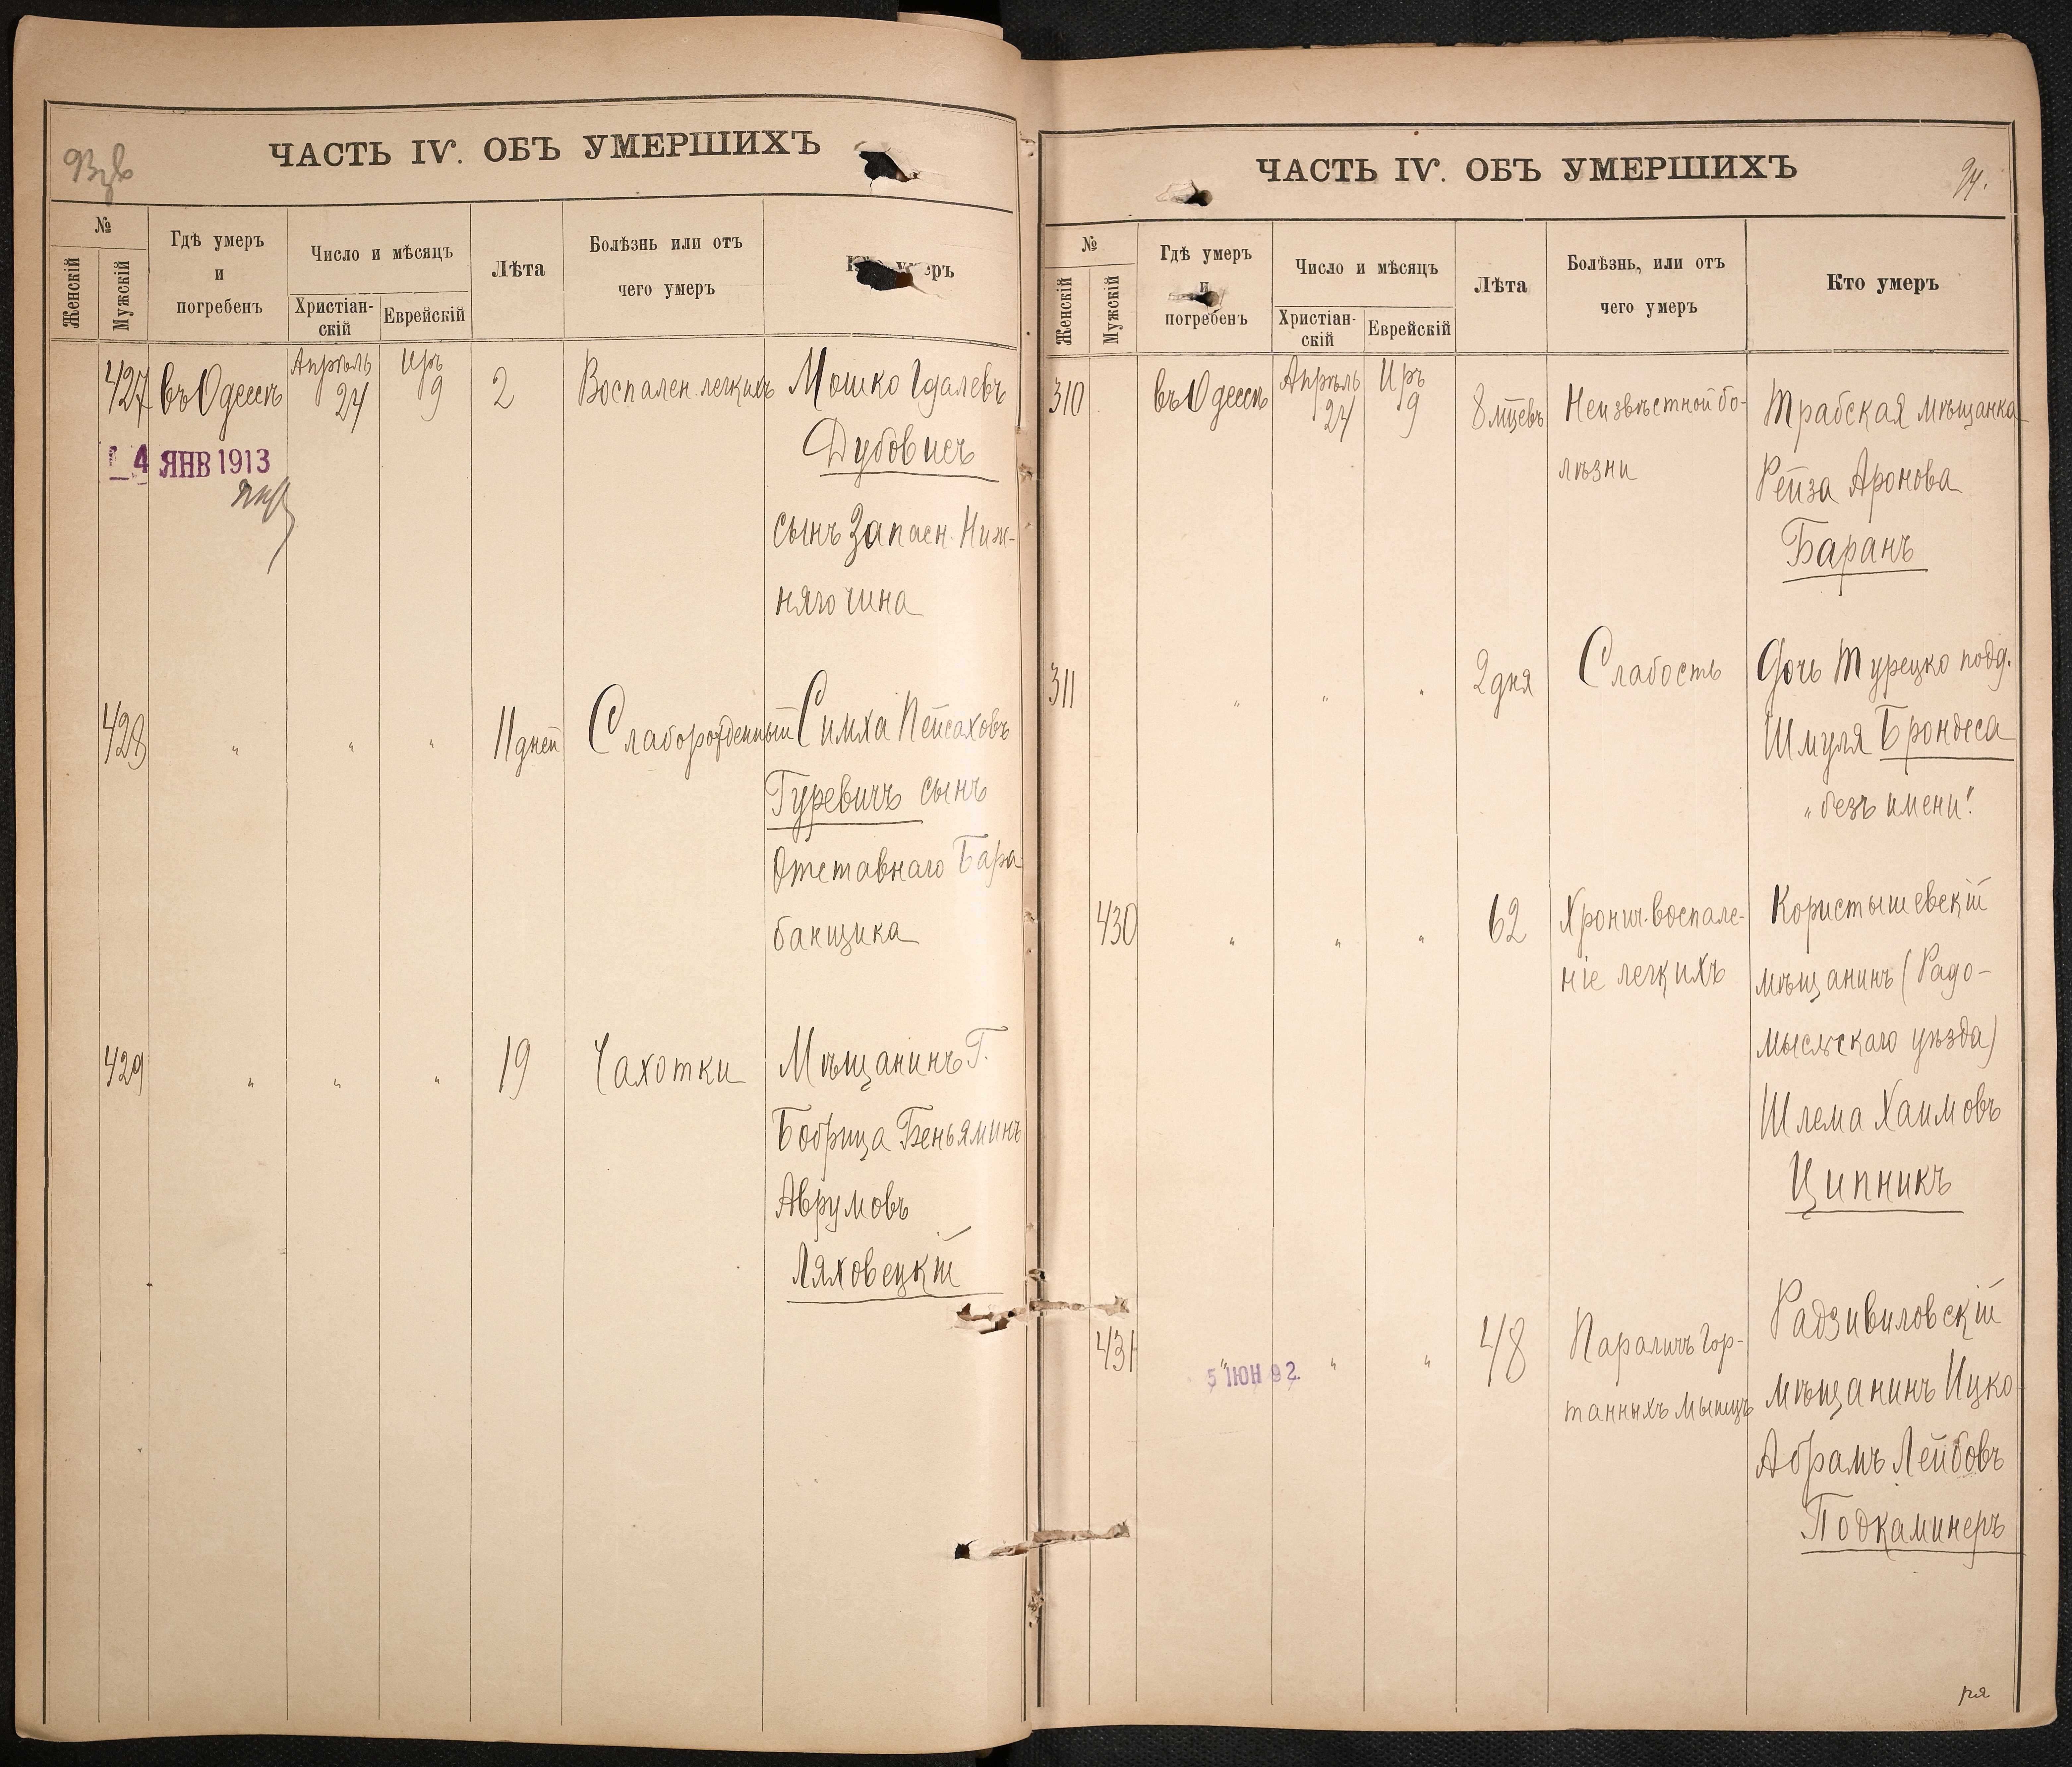 93 об
ЧАСТЬ IV. ОБЪ УМЕРШИХЪ
№
Женскій
Мужскій
Гдѣ умеръ
и
погребенъ
Число и мѣсяцъ
Христіан-
скій
Еврейскій
Лѣта
Болѣзнь или отъ
чего умеръ
умеръ
427 въ Одессѣ Апрѣль 24 Иръ 9 2 Воспален. легкихъ Мошко Гдалевъ
Дубовисъ
4 ЯНВ 1913
сынъ Запасн. Ниж-
няго чина
428 " " " 11 дней Слаборожденный Симха Пейсаховъ
Гуревичъ сынъ
Отставнаго Бара-
банщика
429 " " " 19 Чахотки Мѣщанинъ Г.
Бобрица Беньяминъ
Аврумовъ
Ляховецкій
ЧАСТЬ IV. ОБЪ УМЕРШИХЪ
94.
№
Женскій
Мужскій
Гдѣ умеръ
и
погребенъ
Число и мѣсяцъ
Христіан-
скій
Еврейскій
Лѣта
Болѣзнь, или отъ
чего умеръ
Кто умеръ
310 въ Одессѣ Апрѣль 24 Иръ 9 8 мцевъ Неизвѣстной бо- Трабская мѣщанка
лѣзни Рейза Аронова
Баранъ
311 " " " 2 дня Слабость Дочь Турецко подд.
Шмуля Брондеса
"безъ имени".
430 " " " 62 Хронич. воспале- Користышевскій
ніе легкихъ мѣщанинъ (Радо-
мысльскаго уѣзда)
Шлема Хаимовъ
Ципникъ
431 " " " 48 Параличъ Гор- Радзивиловскій
5 ІЮН 92.
танныхъ мышцъ мѣщанинъ Ицко-
Абрамъ Лейбовъ
Подкаминеръ